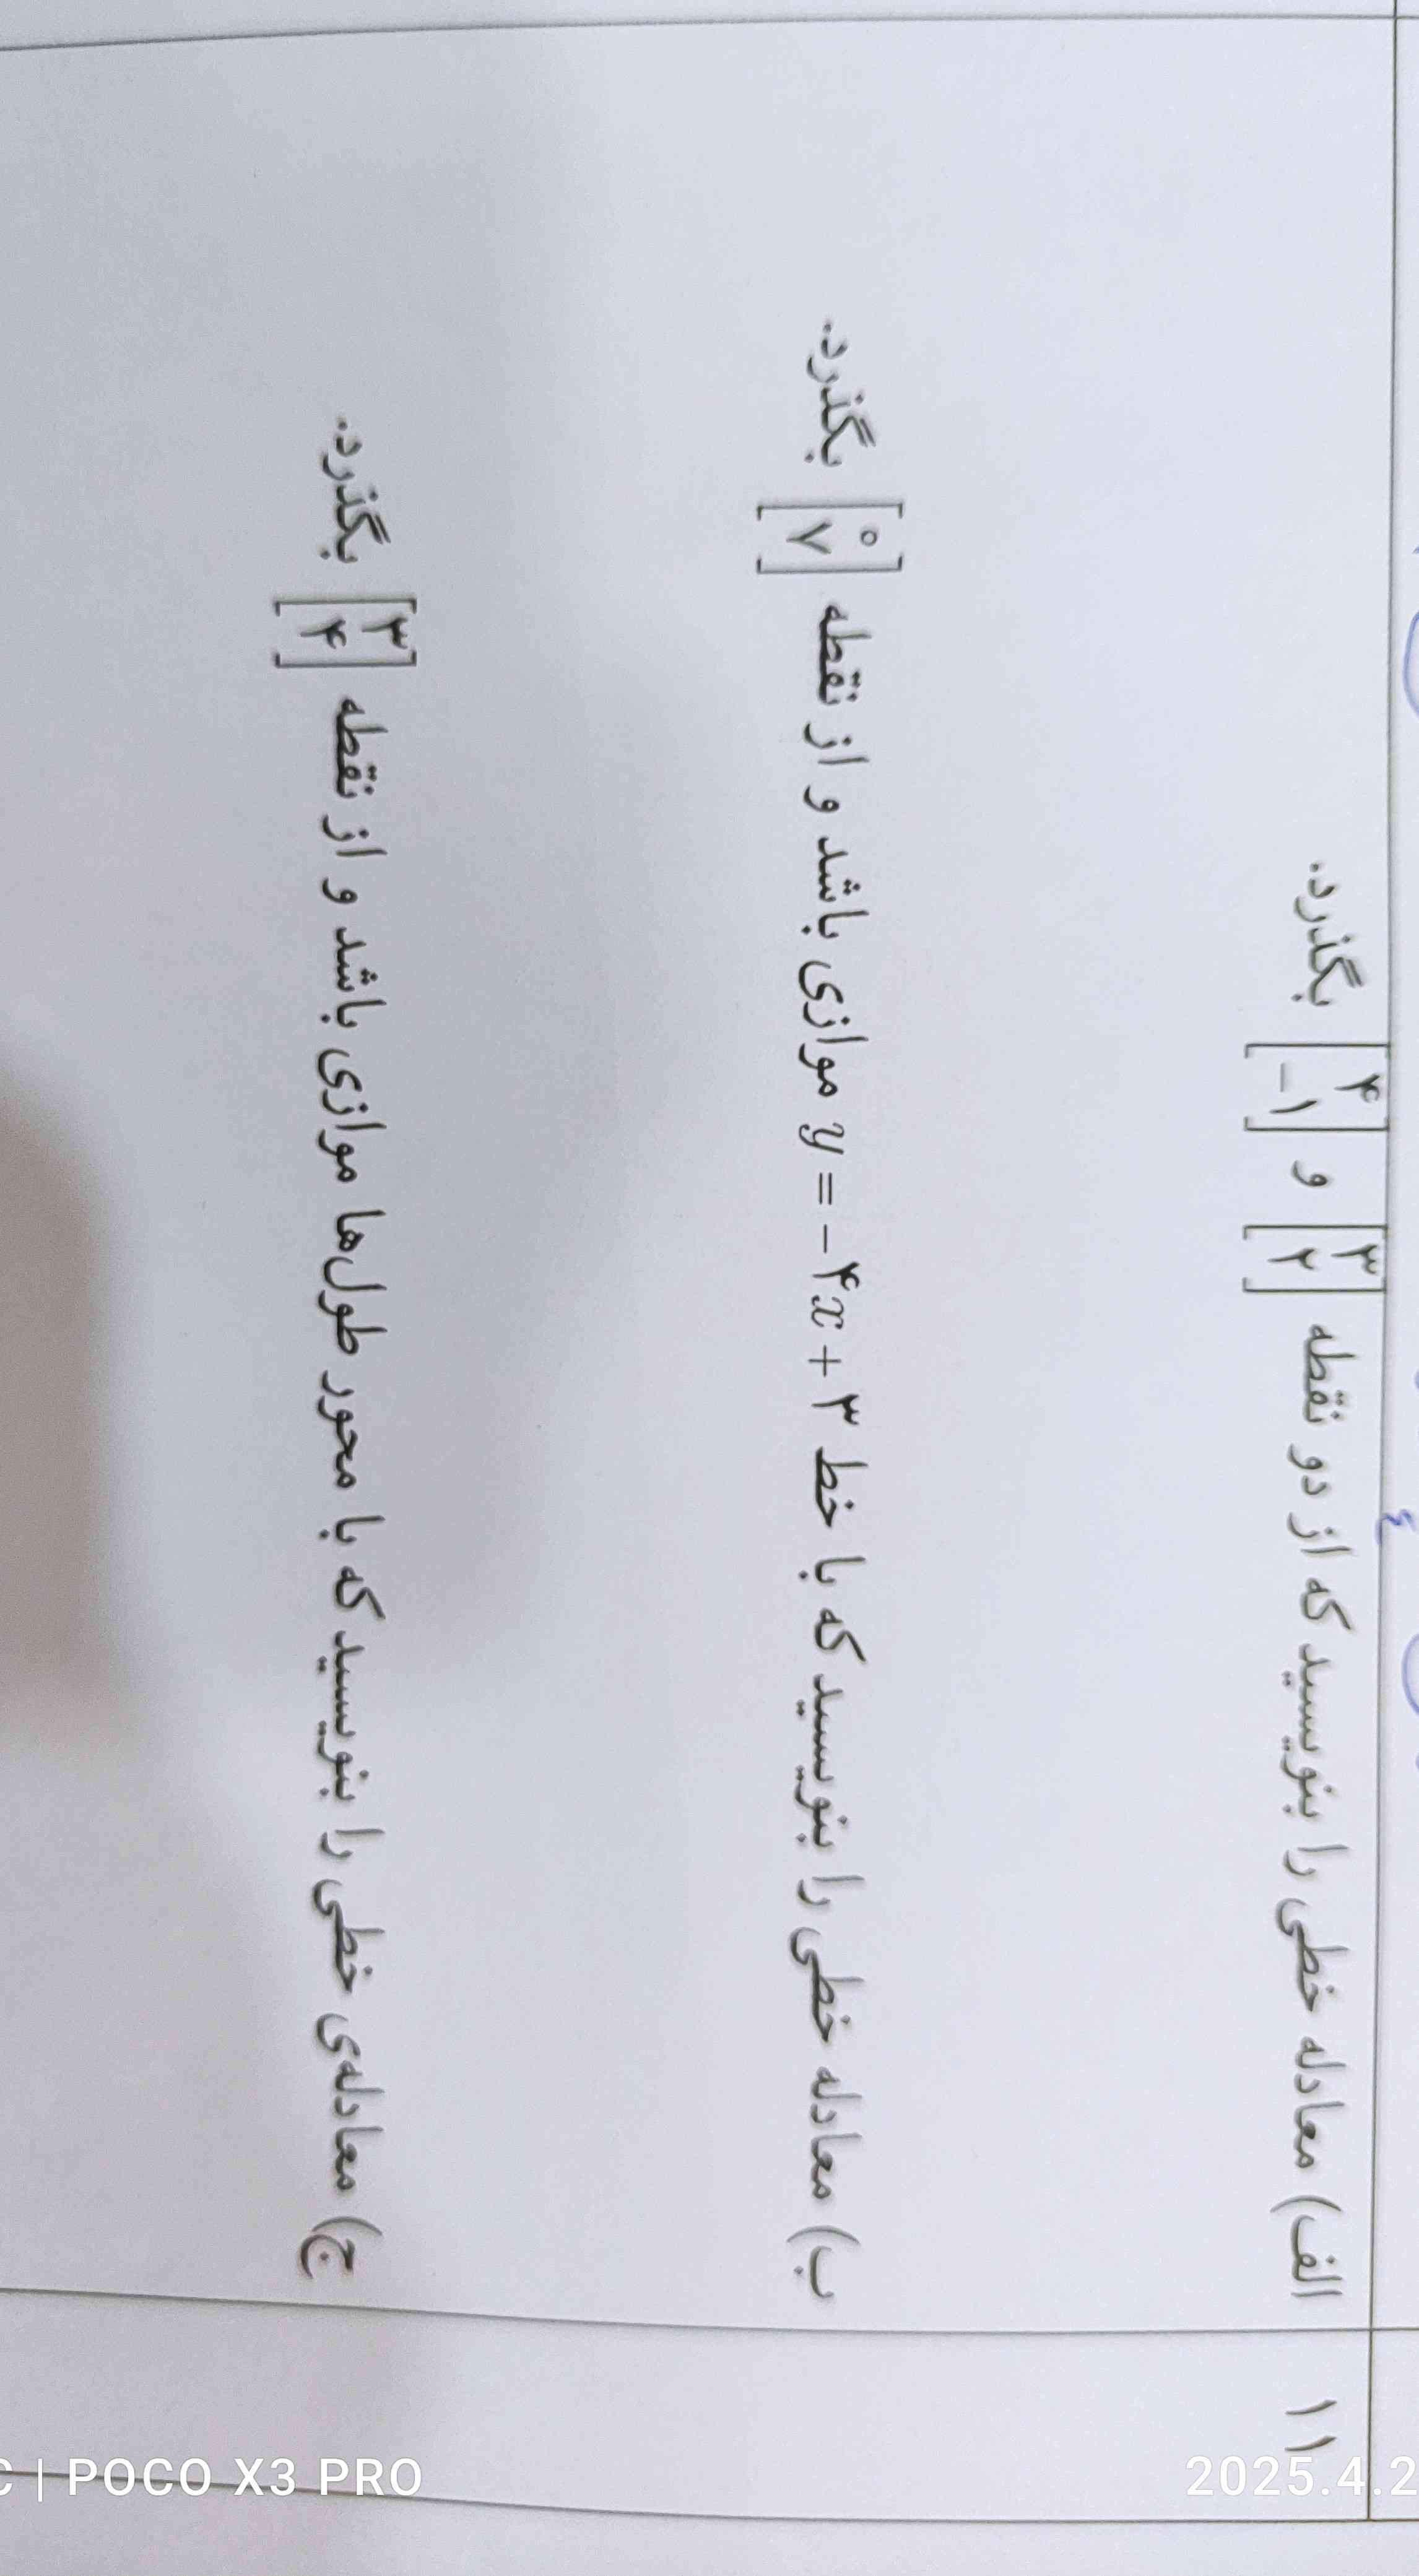 ۱۱
الف) معادله خطی را بنویسید که از دو نقطه [۳ ۲] و [۴ -۱] بگذرد.
ب) معادله خطی را بنویسید که با خط y = -۴x + ۳ موازی باشد و از نقطه [۰ ۷] بگذرد.
ج) معادله‌ی خطی را بنویسید که با محور طول‌ها موازی باشد و از نقطه [۳ ۴] بگذرد.
C | POCO X3 PRO
2025.4.2